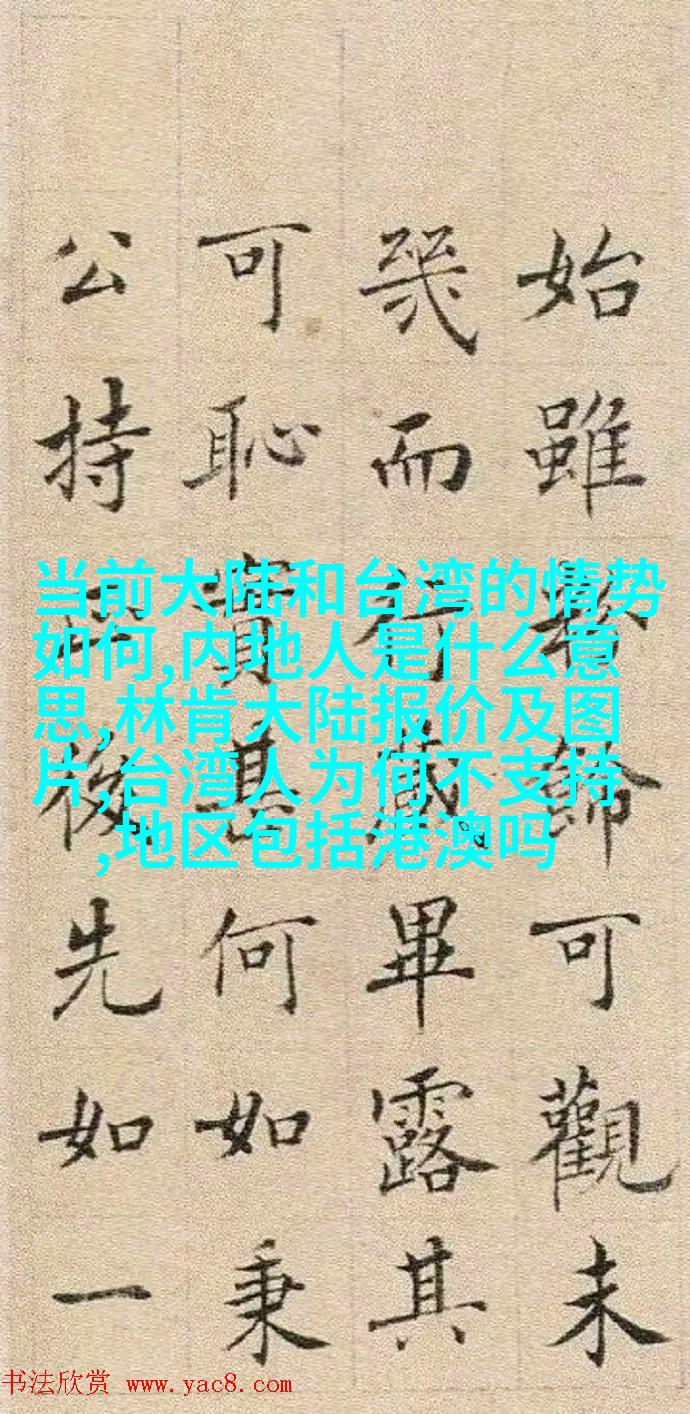 始雖飾可觀未
幾而行藏畢露其
可恥實甚何如秉
公持正後先如一
当前大陆和台湾的情势
如何,内地人是什么意
思,林肯大陆报价及图
片,台湾人为何不支持
,地区包括港澳吗
书法欣赏 www.yac8.com